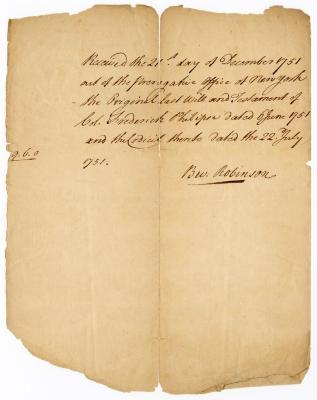 Received the 21st. day of December 1751
out of the Prerogative Office at New york
the Original last Will and Testament of
Col. Frederick Philipse dated 6 June 1751
and the Codicil thereto dated the 22 July
1751.
9.6.0
Bev. Robinson